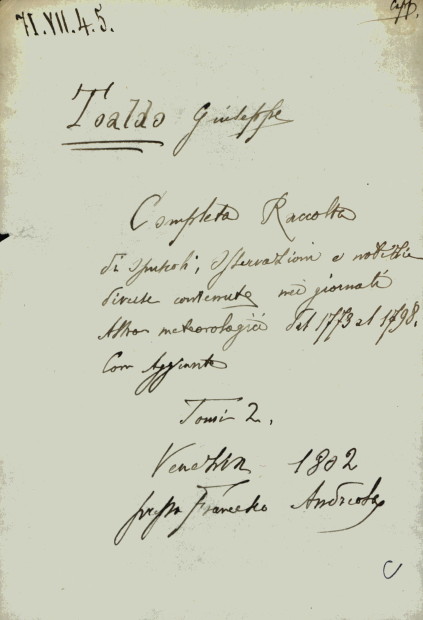 71.VII.4.5.
Capp.
Toaldo Giuseppe
Completa Raccolta
di opuscoli, osservazioni e notizie
diverse contenute nei giornali
Astro meteorologici dal 1773 al 1798.
Con Aggiunte
Tomi 2.
Venezia 1802
presso Francesco Andreola